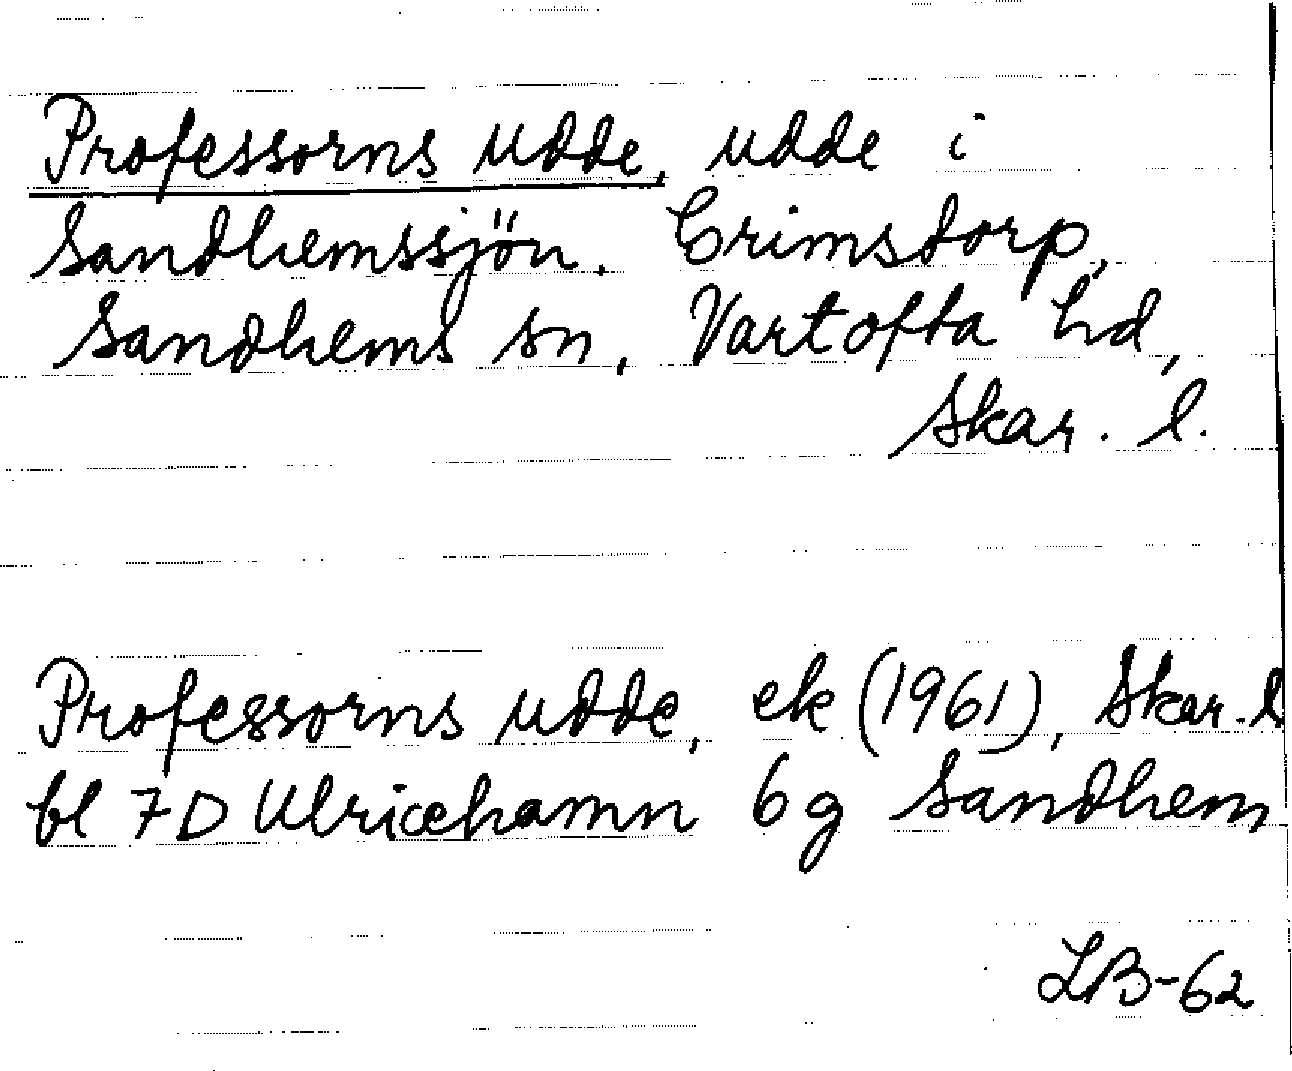 Professorns udde, udde i
Sandhemssjön. Grimstorp,
Sandhems sn, Vartofta hd,
Skar. l.
Professorns udde, ek (1961), Skar. l
bl 7D Ulricehamn 6g Sandhem
LB-62